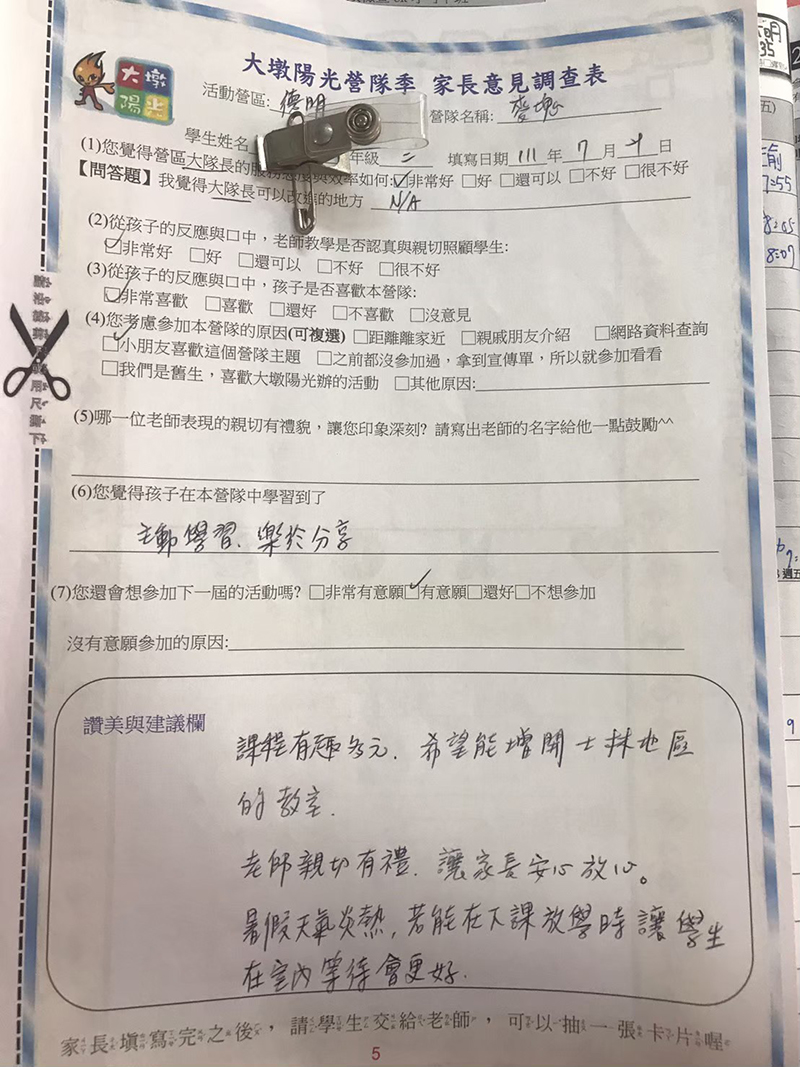 大墩
陽光
大墩陽光營隊季 家長意見調查表
活動營區: 德明 營隊名稱: 麥塊
學生姓名 年級 二 填寫日期 111 年 7 月 日
(1)您覺得營區大隊長的服務態度與效率如何:☑非常好 □好 □還可以 □不好 □很不好
【問答題】我覺得大隊長可以改進的地方 N/A
(2)從孩子的反應與口中，老師教學是否認真與親切照顧學生:
☑非常好 □好 □還可以 □不好 □很不好
(3)從孩子的反應與口中，孩子是否喜歡本營隊:
☑非常喜歡 □喜歡 □還好 □不喜歡 □沒意見
(4)您考慮參加本營隊的原因(可複選) □距離離家近 □親戚朋友介紹 □網路資料查詢
☑小朋友喜歡這個營隊主題 □之前都沒參加過，拿到宣傳單，所以就參加看看
□我們是舊生，喜歡大墩陽光辦的活動 □其他原因:
(5)哪一位老師表現的親切有禮貌，讓您印象深刻? 請寫出老師的名字給他一點鼓勵^^
(6)您覺得孩子在本營隊中學習到了
主動學習、樂於分享
(7)您還會想參加下一屆的活動嗎? □非常有意願☑有意願□還好□不想參加
沒有意願參加的原因:
讚美與建議欄
課程有趣多元. 希望能增開士林地區
的教室.
老師親切有禮. 讓家長安心放心。
暑假天氣炎熱, 若能在下課放學時讓學生
在室內等待會更好.
家長填寫完之後，請學生交給老師，可以抽一張卡片喔
5